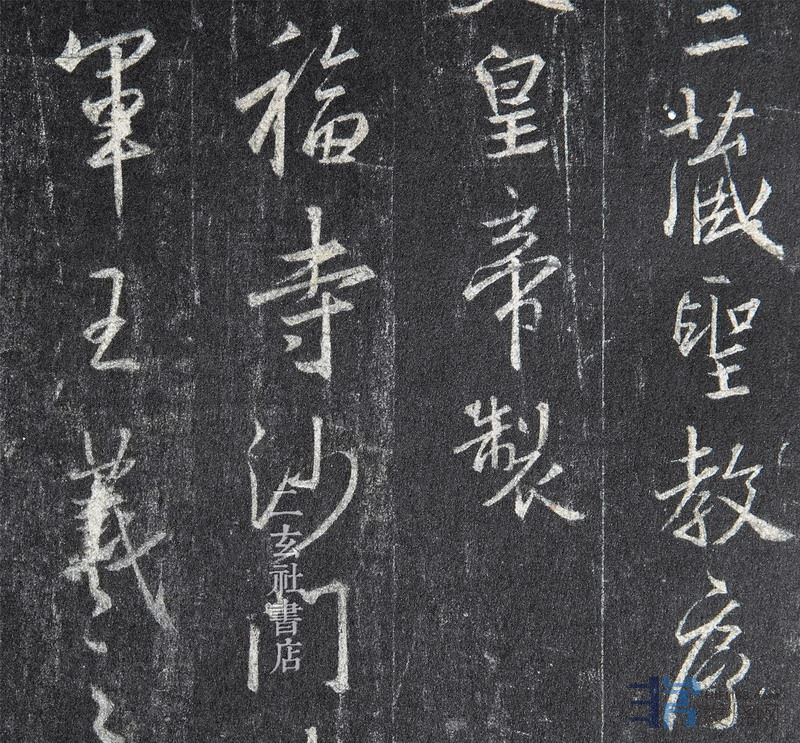 三藏聖教序
文皇帝製
福寺沙門
軍王羲之
二玄社書店